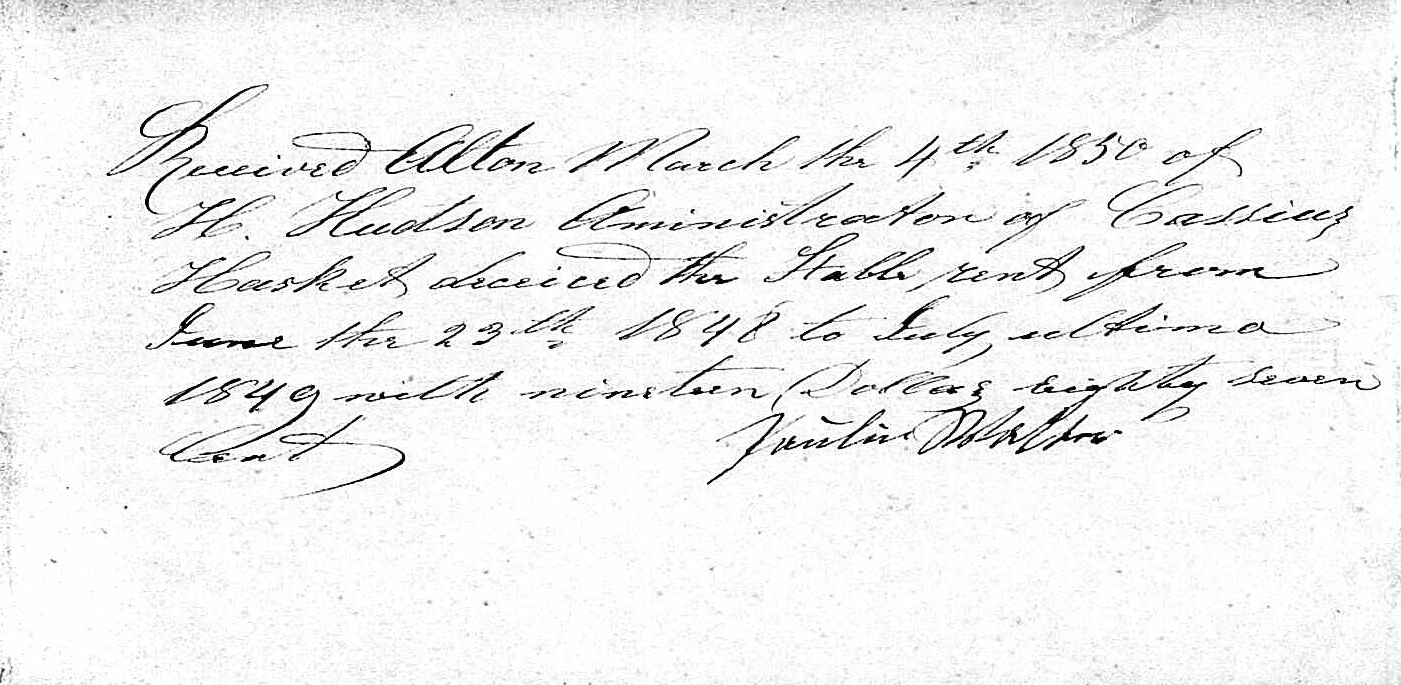 Received Alton March the 4th 1850 of
H. Hudson Aministrator of Cassius
Hasket deceiced the Stable rent from
June the 23th 1848 to July ultimo
1849 with nineteen Dollars eighty seven
Cent